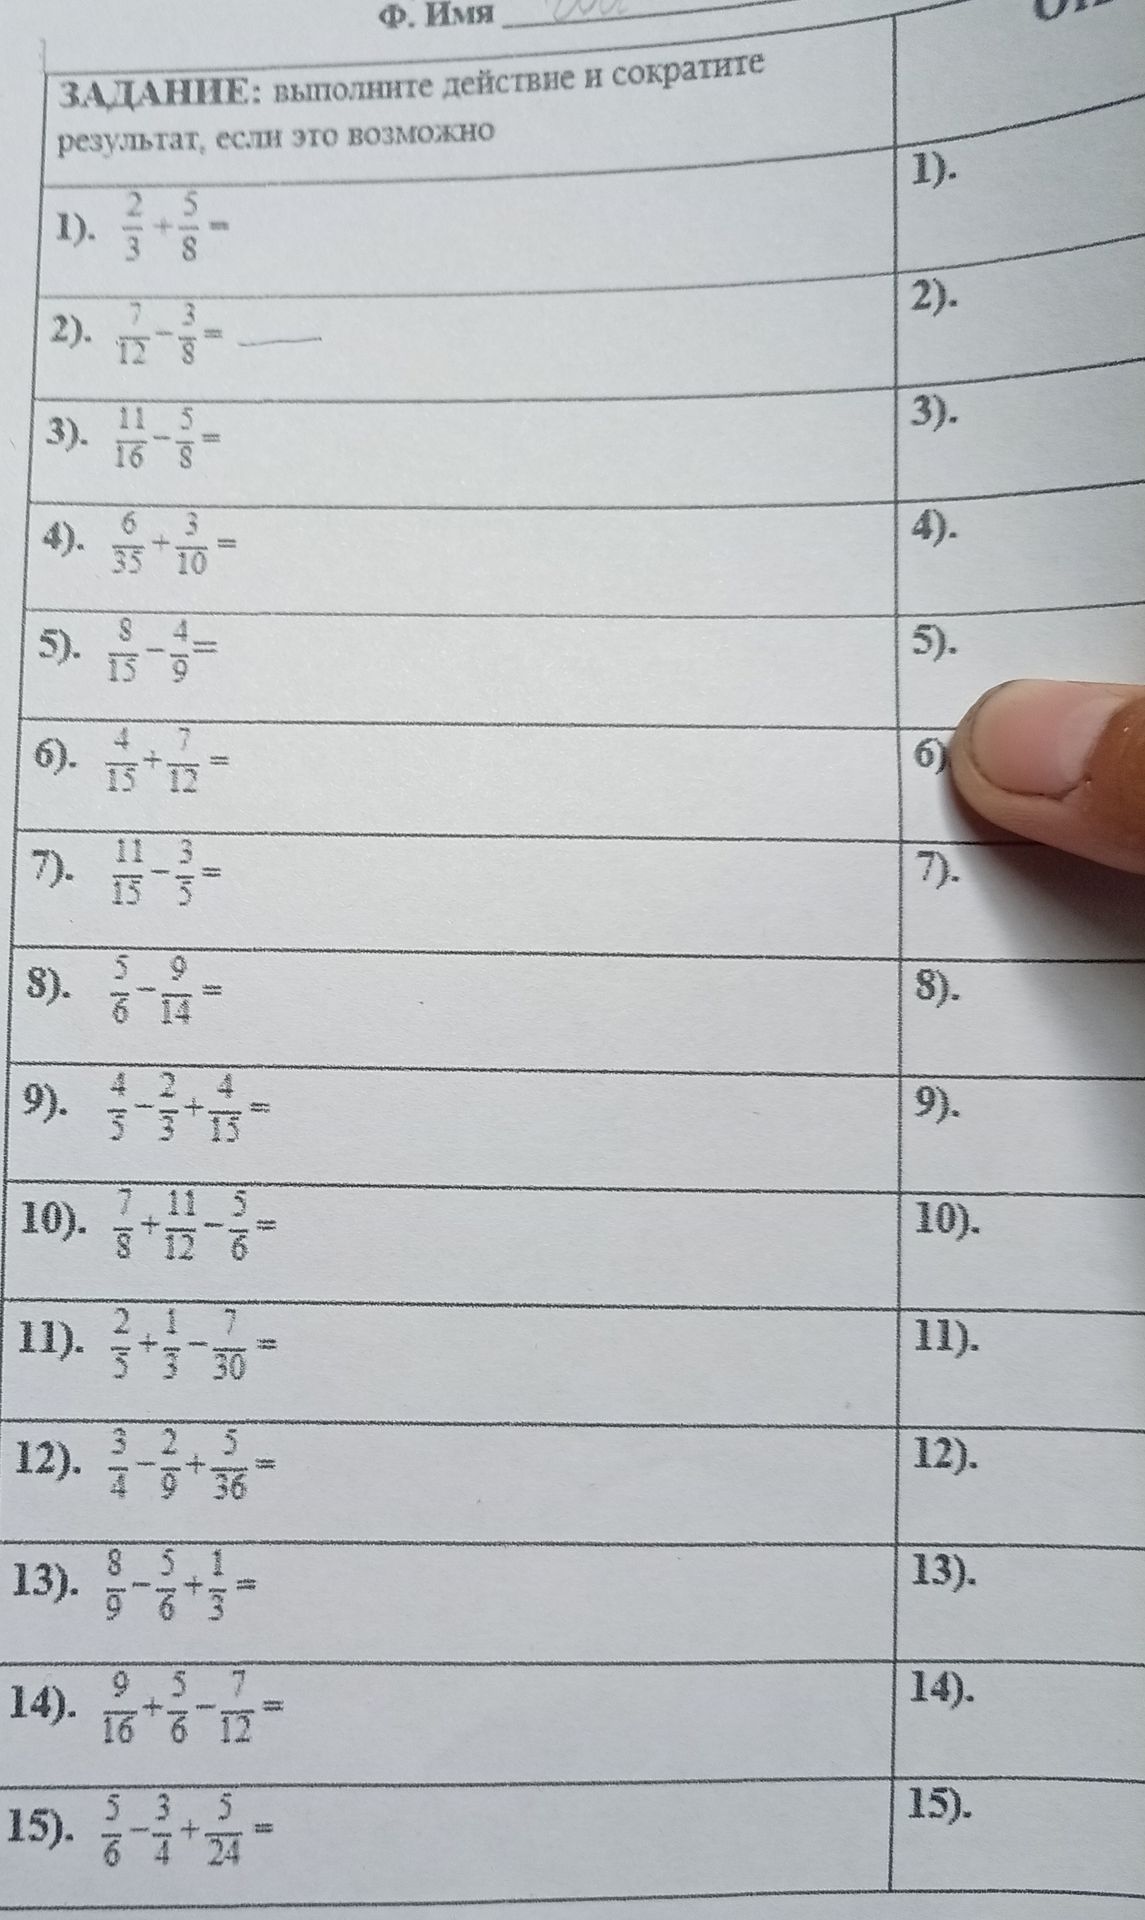 Ф. Имя
ЗАДАНИЕ: выполните действие и сократите
результат, если это возможно
1). 2/3 + 5/8 =
1).
2). 7/12 − 3/8 =
2).
3). 11/16 − 5/8 =
3).
4). 6/35 + 3/10 =
4).
5). 8/15 − 4/9 =
5).
6). 4/15 + 7/12 =
6)
7). 11/15 − 3/5 =
7).
8). 5/6 − 9/14 =
8).
9). 4/5 − 2/3 + 4/15 =
9).
10). 7/8 + 11/12 − 5/6 =
10).
11). 2/5 + 1/3 − 7/30 =
11).
12). 3/4 − 2/9 + 5/36 =
12).
13). 8/9 − 5/6 + 1/3 =
13).
14). 9/16 + 5/6 − 7/12 =
14).
15). 5/6 − 3/4 + 5/24 =
15).